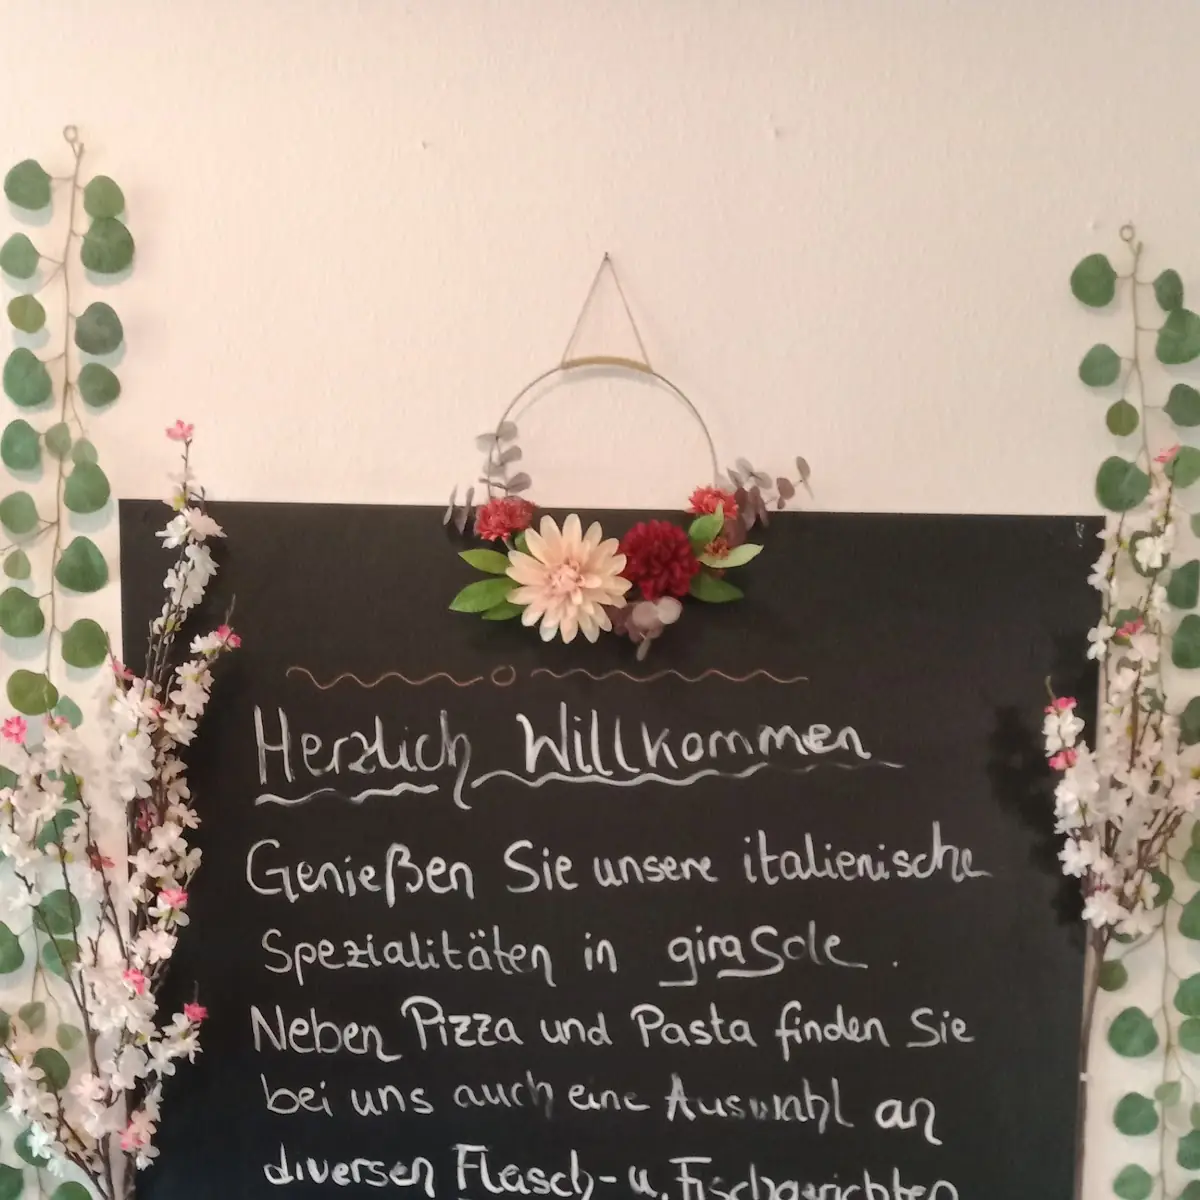 Herzlich Willkommen
Genießen Sie unsere italienische
Spezialitäten in giraSole.
Neben Pizza und Pasta finden Sie
bei uns auch eine Auswahl an
diversen Flasch- u. Fischgerichten